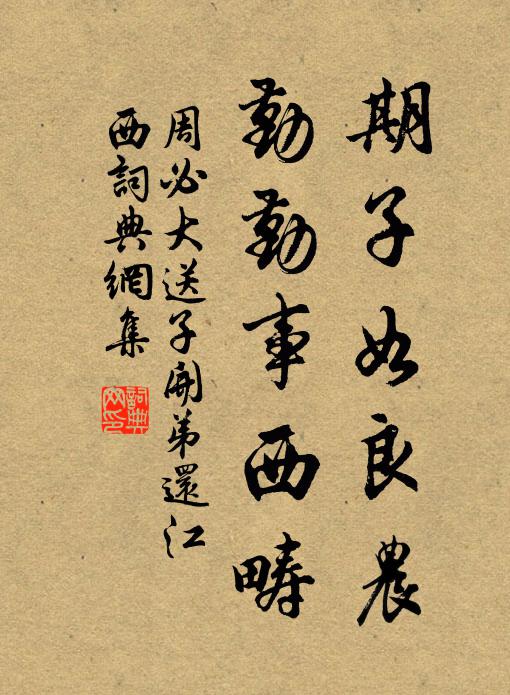 期子如良農
勤勤事西疇
周必大送子開弟還江
西詞典網集
詞典
网印